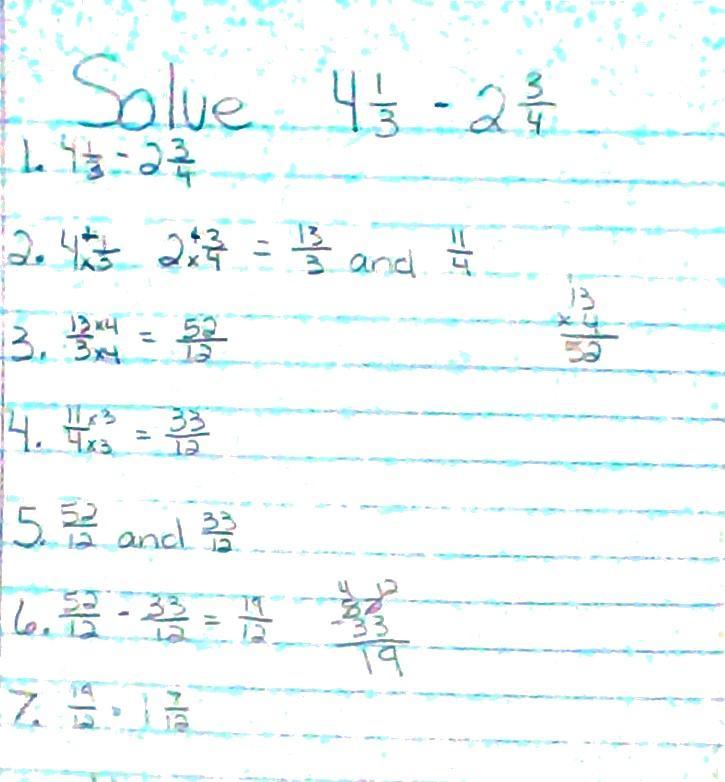 Solve 4 1/3 - 2 3/4
1. 4 1/3 - 2 3/4
2. 4 + × 1/3 2 + × 3/4 = 13/3 and 11/4
13
× 4
52
3. 13 × 4 / 3 × 4 = 52/12
4. 11 × 3 / 4 × 3 = 33/12
5. 52/12 and 33/12
6. 52/12 - 33/12 = 19/12
4 12
52
- 33
19
7. 19/12 = 1 7/12